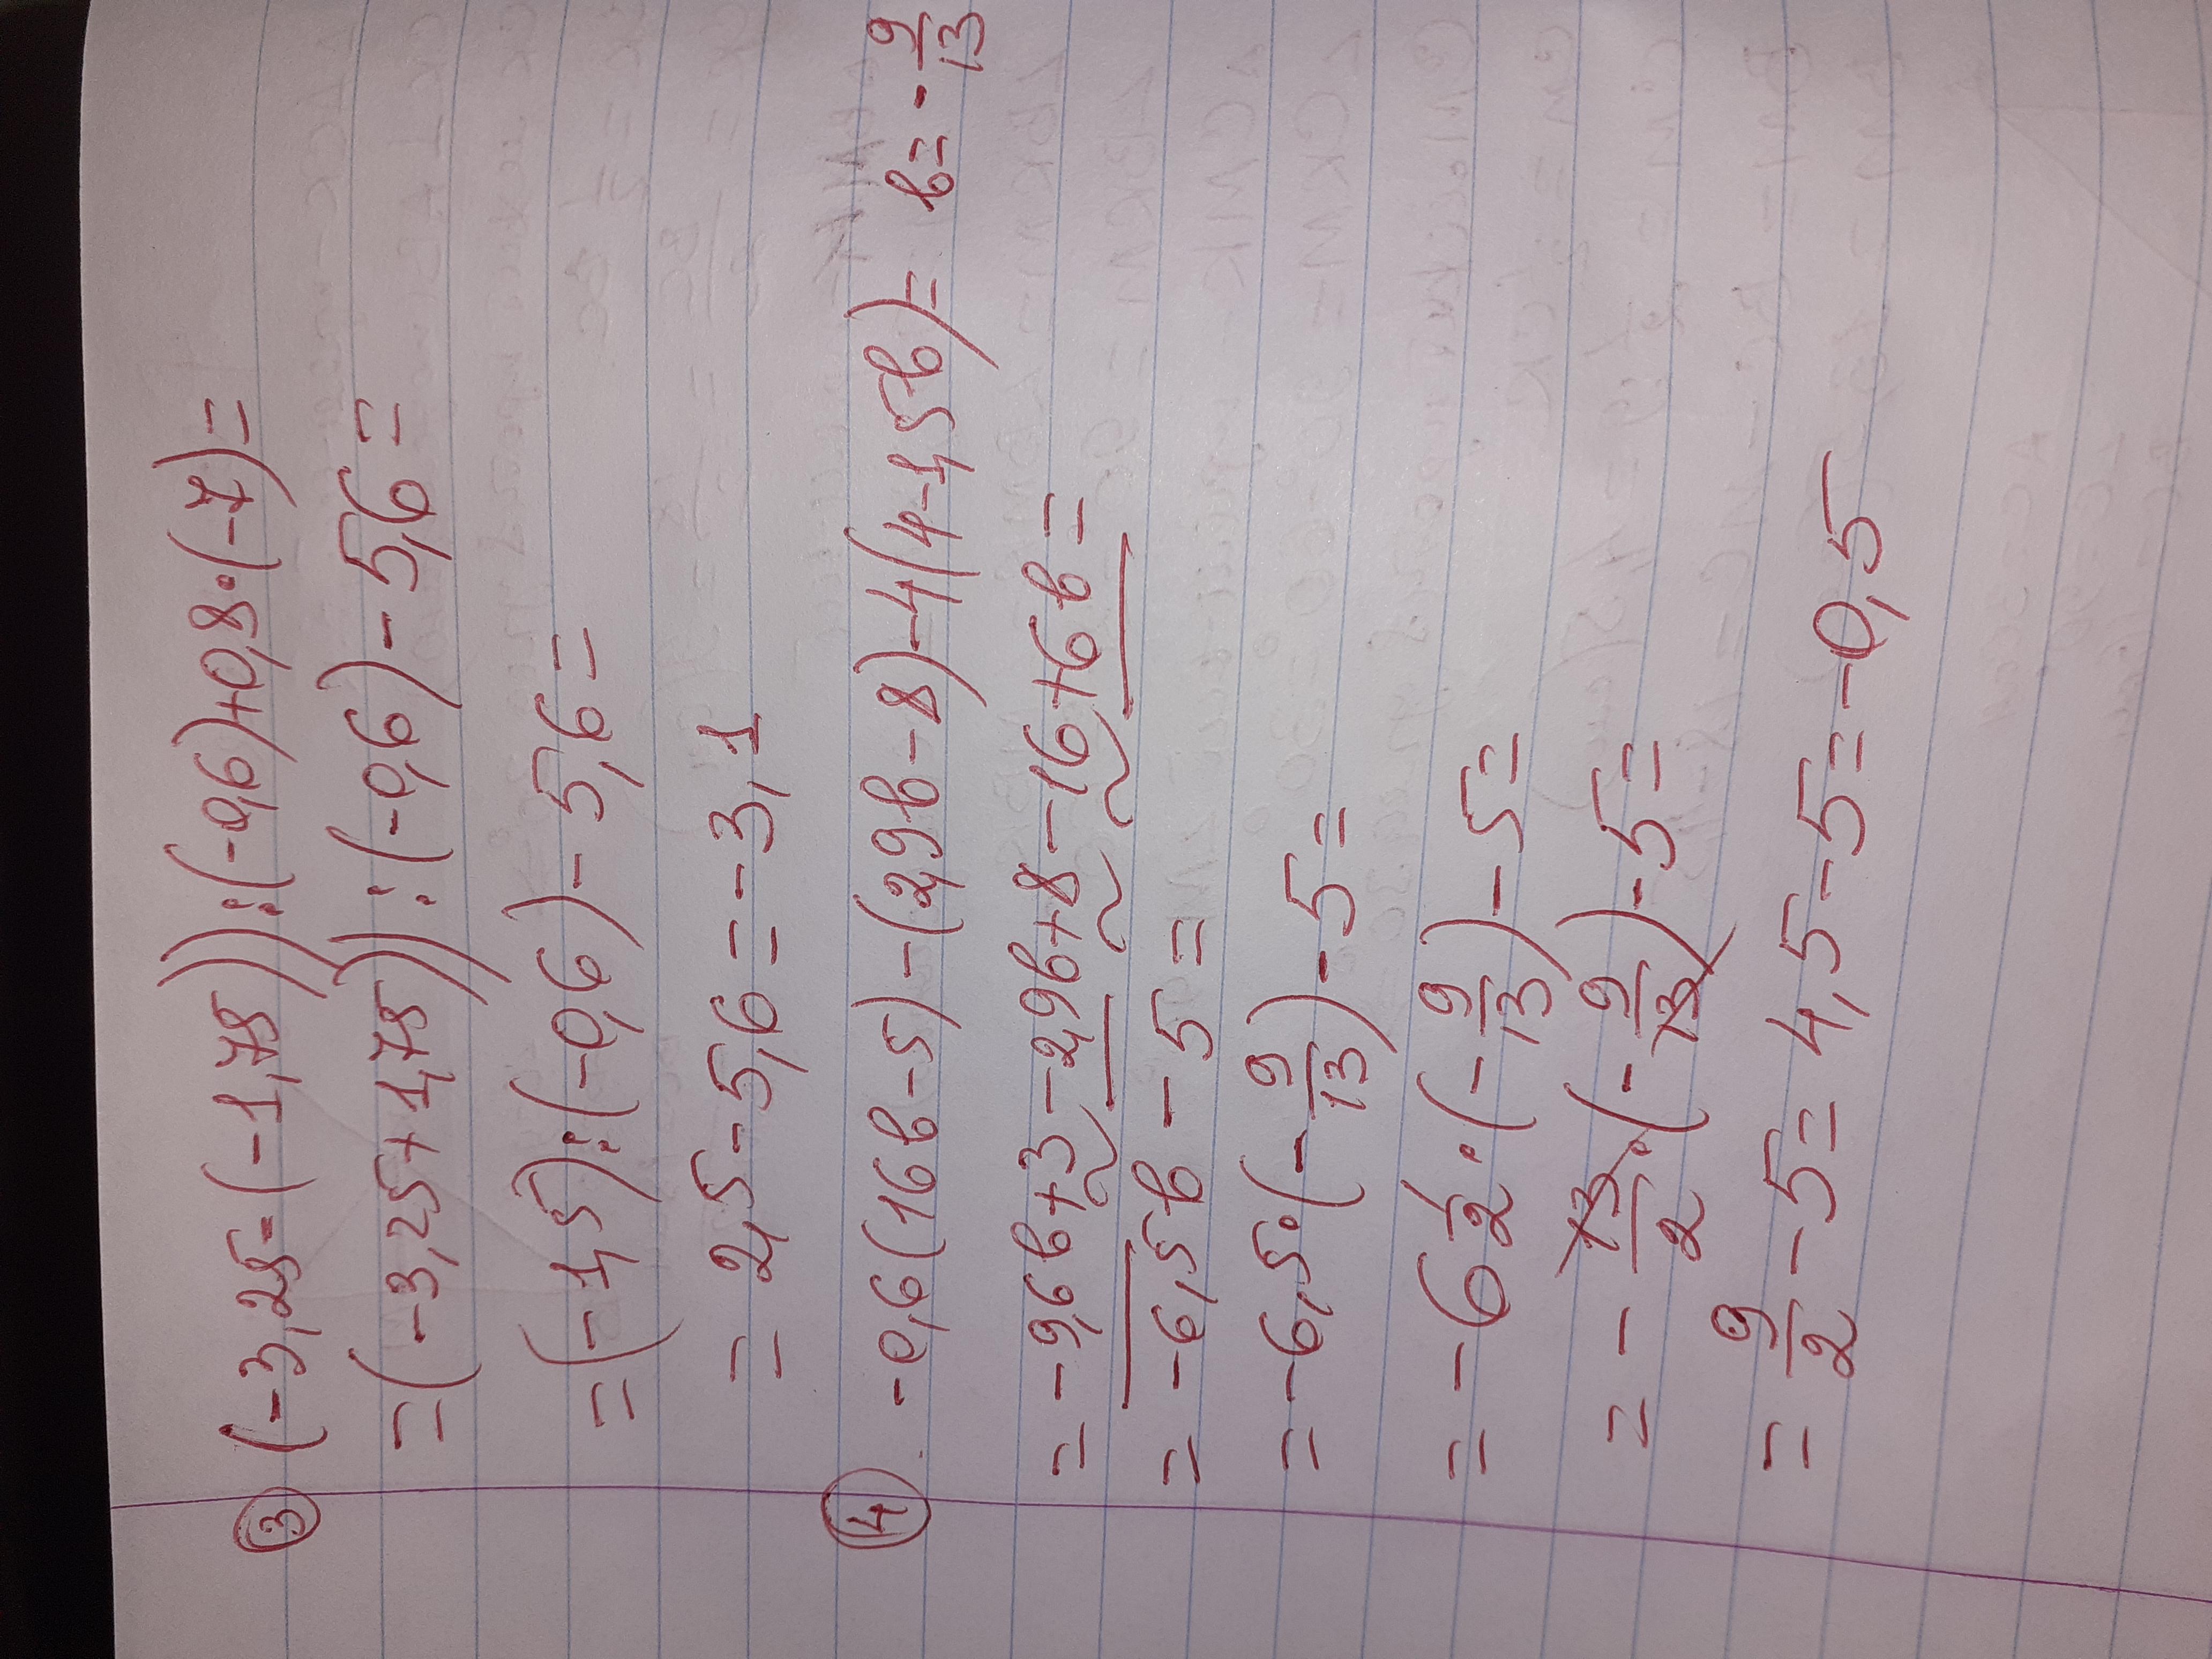 ③ (-3,25-(-1,75)):(-0,6)+0,8·(-7)=
=(-3,25+1,75)):(-0,6)-5,6=
=(-1,5):(-0,6)-5,6=
=2,5-5,6=-3,1
④ -0,6(16b-5)-(2,9b-8)-4(4-1,5b)= b=-9/13
=-9,6b+3-2,9b+8-16+6b=
=-6,5b-5=
=-6,5·(-9/13)-5=
=-6 1/2·(-9/13)-5=
=-13/2·(-9/13)-5=
=9/2-5=4,5-5=-0,5